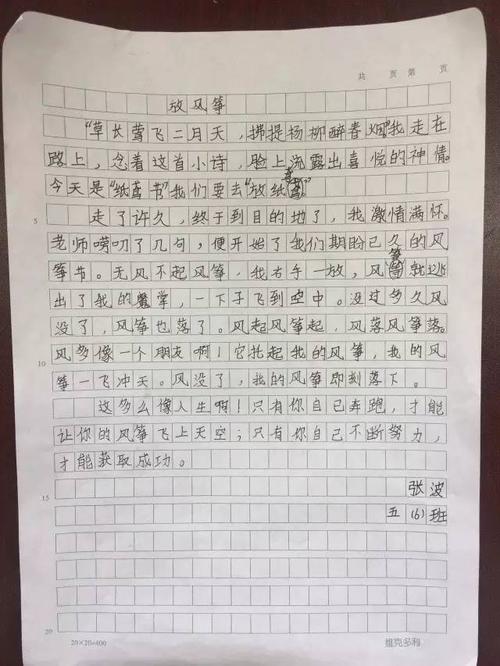 共 页 第 页
放风筝
“草长莺飞二月天，拂提杨柳醉春烟”我走在
路上，念着这首小诗，脸上流露出喜悦的神情。
今天是“纸鸢节”我们要去“放纸鸢”
5
走了许久，终于到目的地了，我激情满怀。
老师唠叨了几句，便开始了我们期盼已久的风
筝节。无风不起风筝，我右手一放，风筝就逃
出了我的手掌，一下子飞到空中。没过多久风
没了，风筝也落了。风起风筝起，风落风筝落。
10
风多像一个朋友啊！它托起我的风筝，我的风
筝一飞冲天。风没了，我的风筝即刻落下。
这多么像人生啊！只有你自己奔跑，才能
让你的风筝飞上天空；只有你自己不断努力，
才能获取成功。
15
张波
五（6）班
20
20×20=400
维克多利